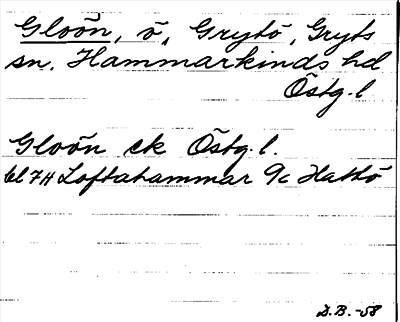 Gloön, ö, Grytö, Gryts
sn. Hammarkinds hd
Östg. l
Gloön ek Östg. l.
bl 7H Loftahammar 9c Hattö
D.B. -58